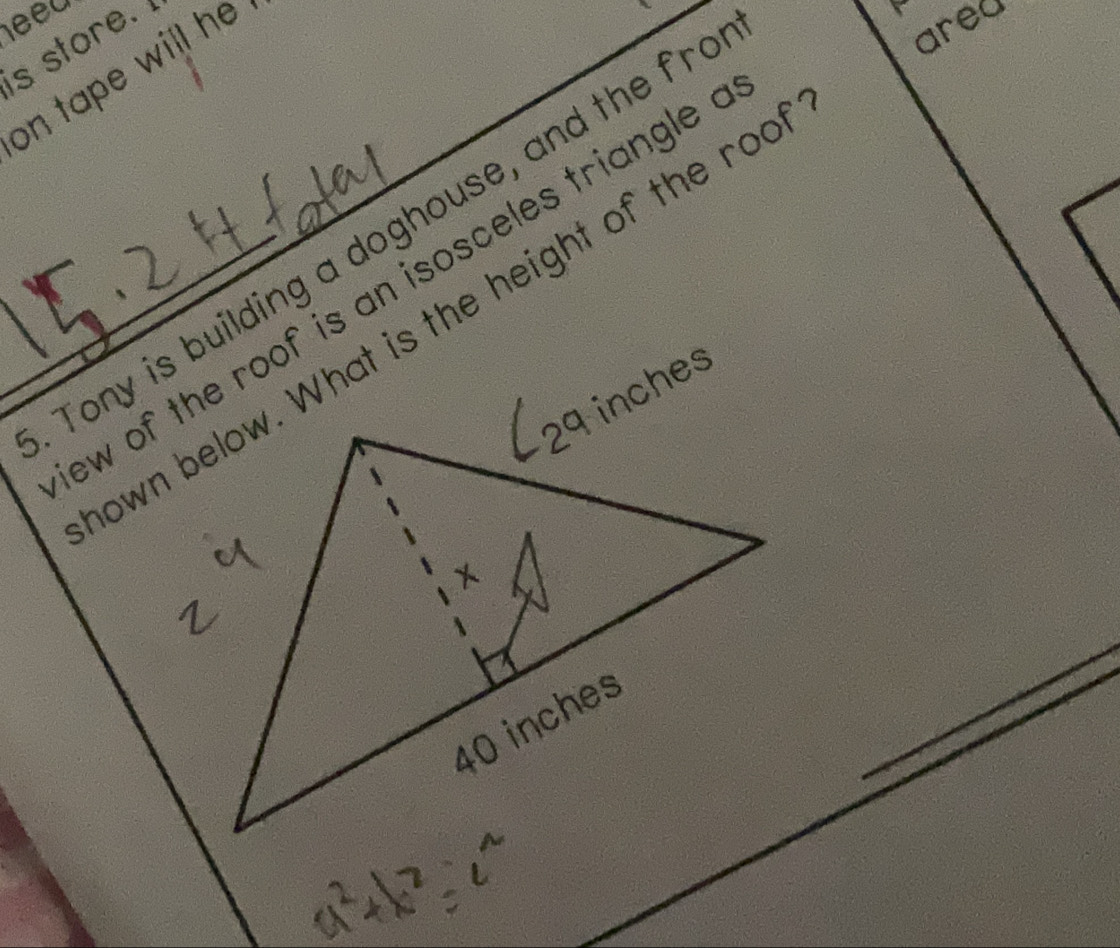 is store.
ion tape will he
15.2 ft total
area
5. Tony is building a doghouse, and the front
view of the roof is an isosceles triangle as
shown below. What is the height of the roof?
29 inches
x
40 inches